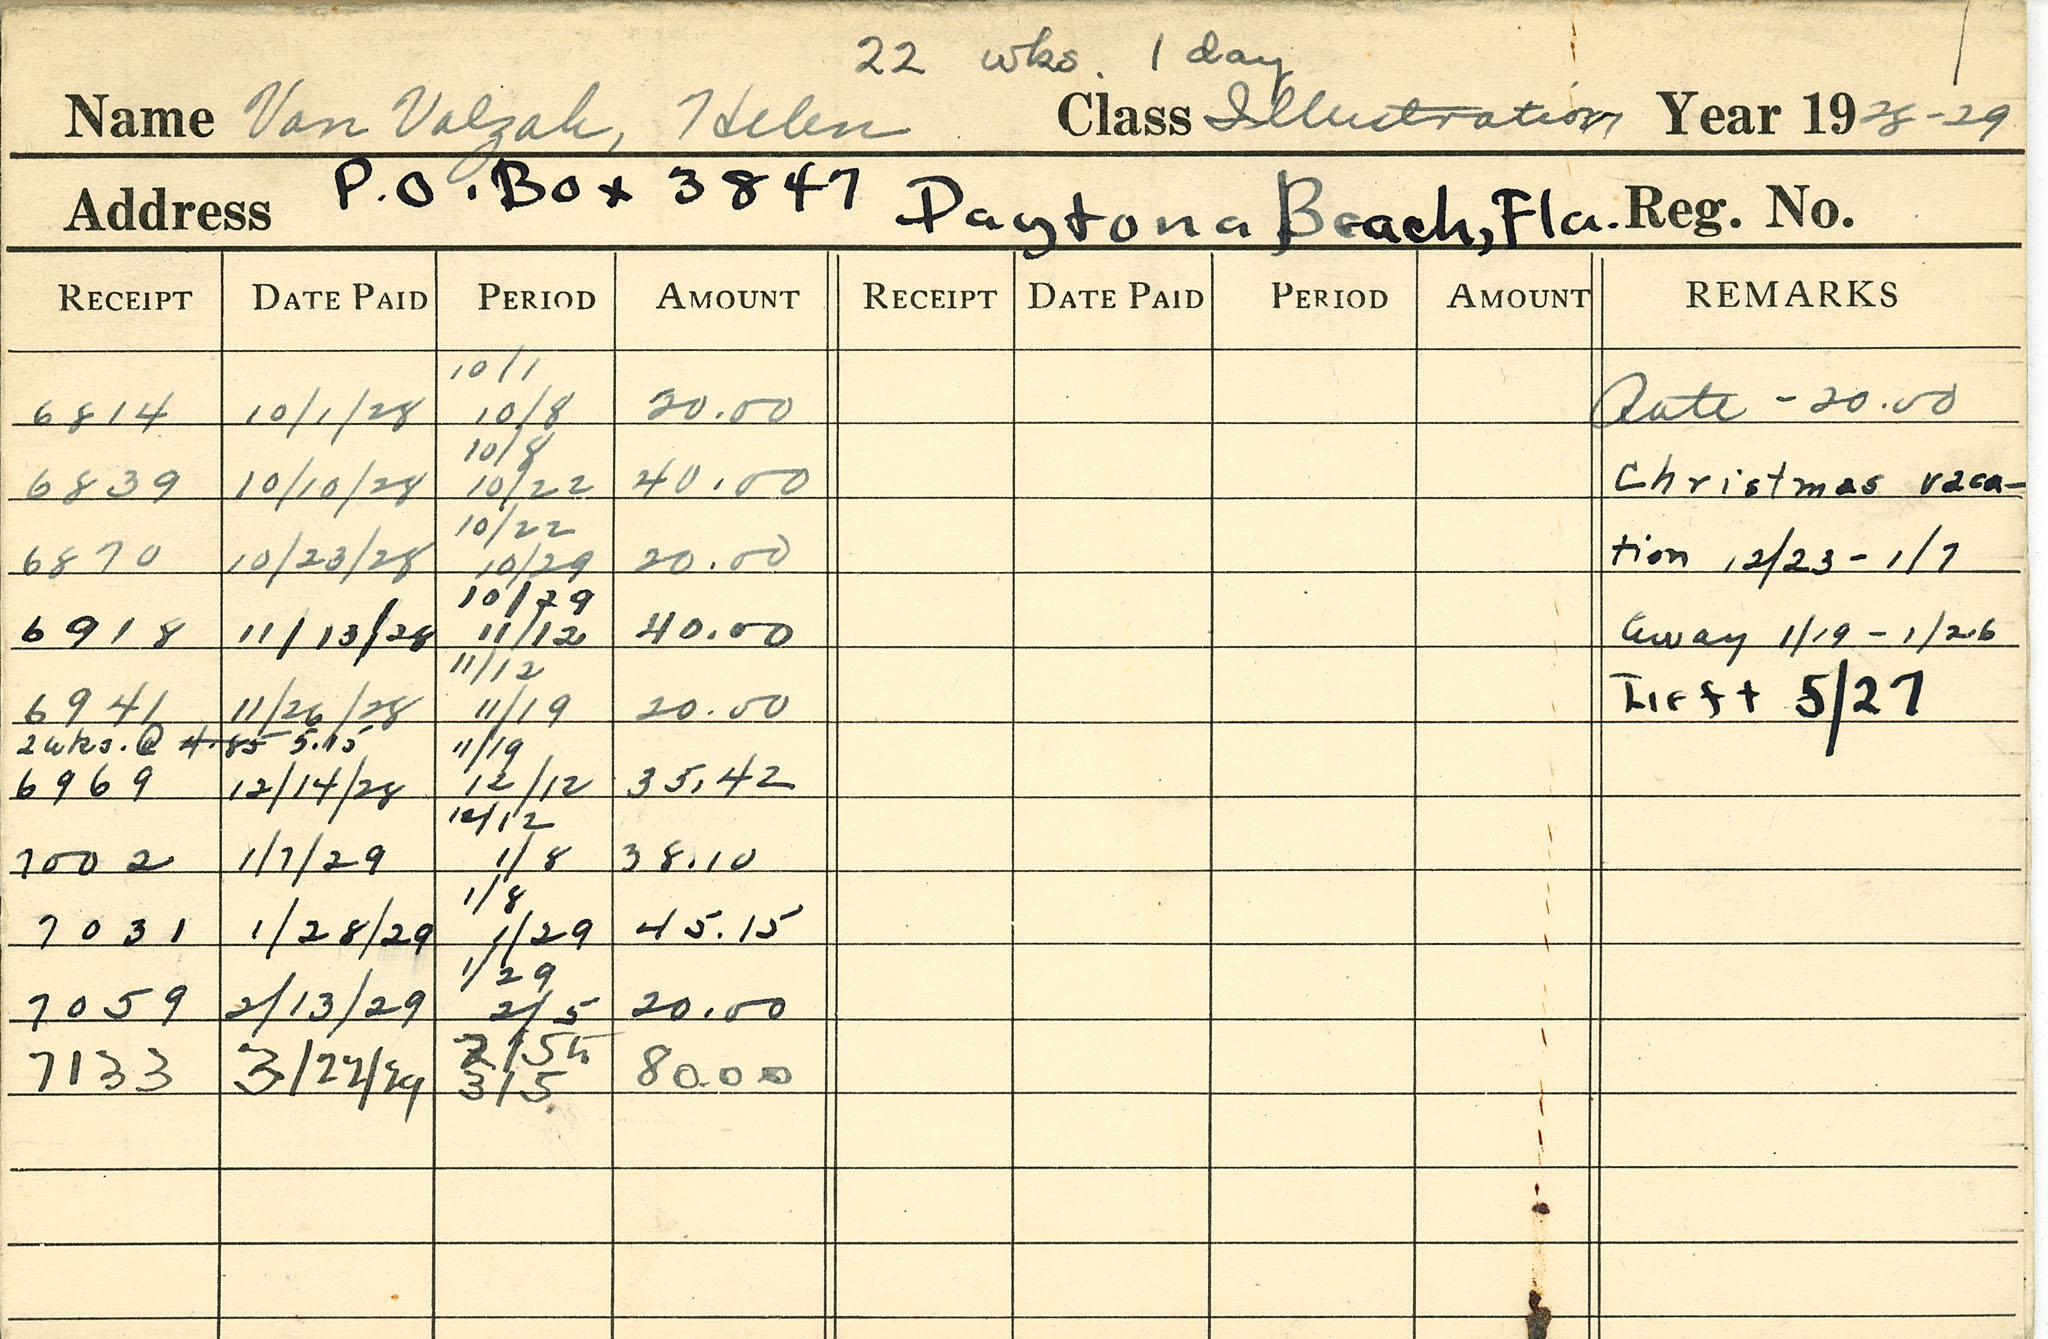 22 wks. 1 day
Name Van Valzah, Helen Class Illustration Year 1928-29
Address P.O. Box 3847 Daytona Beach, Fla. Reg. No.
RECEIPT DATE PAID PERIOD AMOUNT RECEIPT DATE PAID PERIOD AMOUNT REMARKS
10/1
6814 10/1/28 10/8 20.00 Rate - 20.00
10/8
6839 10/10/28 10/22 40.00 Christmas vaca-
10/22
6870 10/23/28 10/29 20.00 tion 12/23 - 1/7
10/29
6918 11/13/28 11/12 40.00 Away 1/19 - 1/26
11/12
6941 11/26/28 11/19 20.00 Left 5/27
2 wks. @ 4.85 5.15 11/19
6969 12/14/28 12/12 35.42
12/12
7002 1/7/29 1/8 38.10
1/8
7031 1/28/29 1/29 45.15
1/29
7059 2/13/29 2/5 20.00
2/5
7133 3/22/29 3/5 80.00